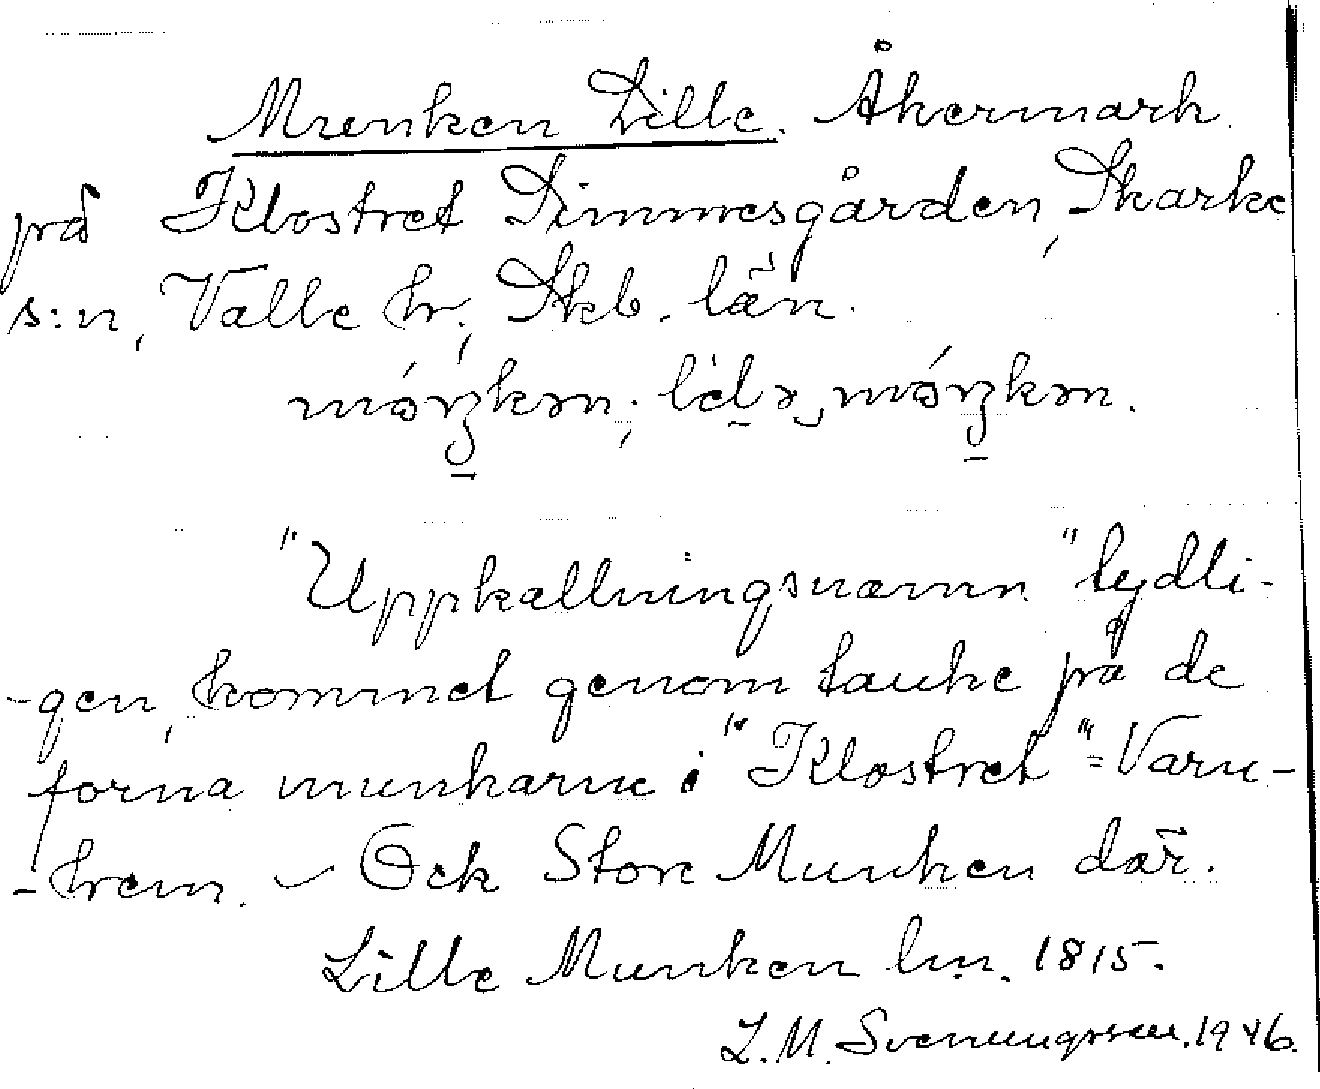 Munken Lille. Åkermark
på Klostret Simmesgården, Skarke
s:n, Valle hr, Skb. län.
"Uppkallningsnamn" tydli-
-gen, kommet genom tanke på de
forna munkarne i "Klostret" = Varn-
-hem. – Ock Store Munken där.
Lille Munken lm. 1815.
L. M. Svenungsson. 1946.